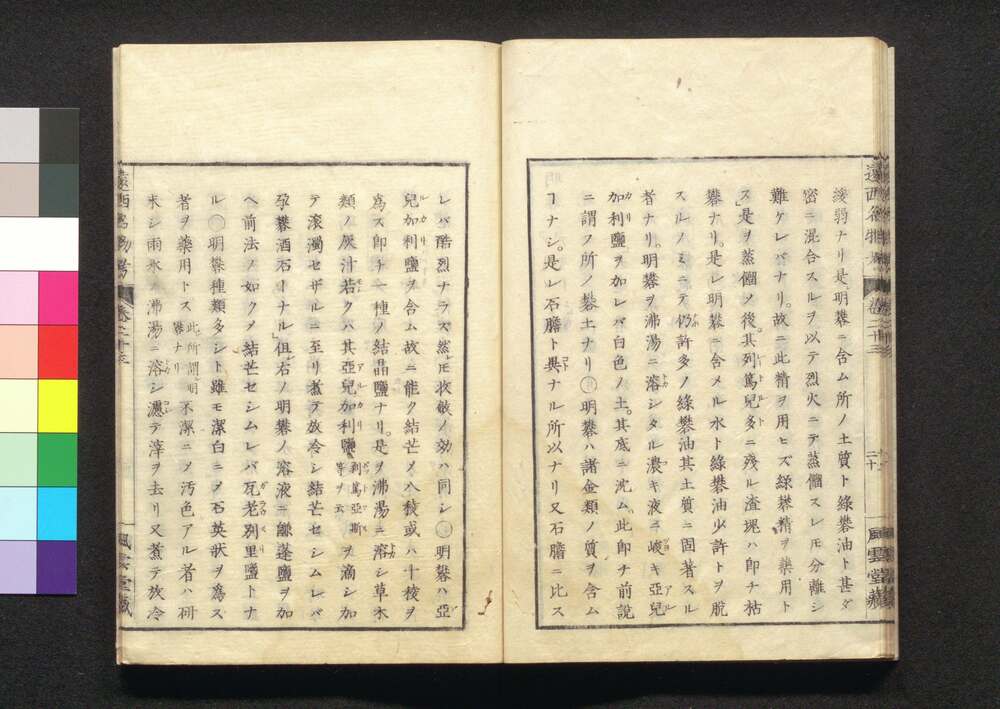 緩弱ナリ是明礬ニ含ム所ノ土質ト綠礬油ト甚ダ
密ニ混合スルヲ以テ烈火ニテ蒸餾スレ𪜈分離シ
難ケレバナリ。故ニ此精ヲ用ヒズ綠礬精ヲ藥用ト
ス是ヲ蒸餾ノ後。其列篤兒多ニ殘ル渣塊ハ即チ枯
礬ナリ。是レ明礬ニ含メル水ト綠礬油少許トヲ脫
スルノミニテ仍許多ノ綠礬油其土質ニ固著スル
者ナリ。明礬ヲ沸湯ニ溶シタル濃キ液ニ峻キ亞兒
加利鹽ヲ加レバ白色ノ土。其底ニ沈ム。此卽チ前說
ニ謂フ所ノ礬土ナリ○明礬ハ諸金類ノ質ヲ含ム
ヿナシ。是レ石膽ト異ナル所以ナリ又石膽ニ比ス
遠西
卷二十三
二十
風雲堂藏
レバ酷烈ナラズ然𪜈收斂ノ効ハ同シ○明礬ハ亞
兒加利鹽ヲ含ム故ニ能ク結芒メ八稜或ハ十稜ヲ
爲ス卽チ一種ノ結晶鹽ナリ。是ヲ沸湯ニ溶シ草木
類ノ灰汁若クハ其亞兒加利鹽剝篤亞斯等ヲ云ヲ滴シ加
テ滾濁セザルニ至リ煮テ放冷シ結芒セシムレバ
孕礬酒石トナル但右ノ明礬ノ溶液ニ鹻蓬鹽ヲ加
ヘ前法ノ如クメ結芒セシムレバ瓦老別里鹽トナ
ル○明礬種類多シト雖モ潔白ニメ石英狀ヲ爲ス
者ヲ藥用トス此所謂明礬ナリ不潔ニメ汚色アル者ハ硏
末シ雨水沸湯ニ溶シ濾テ滓ヲ去リ又煮テ放冷
遠西名物考
卷二十三
風雲堂藏